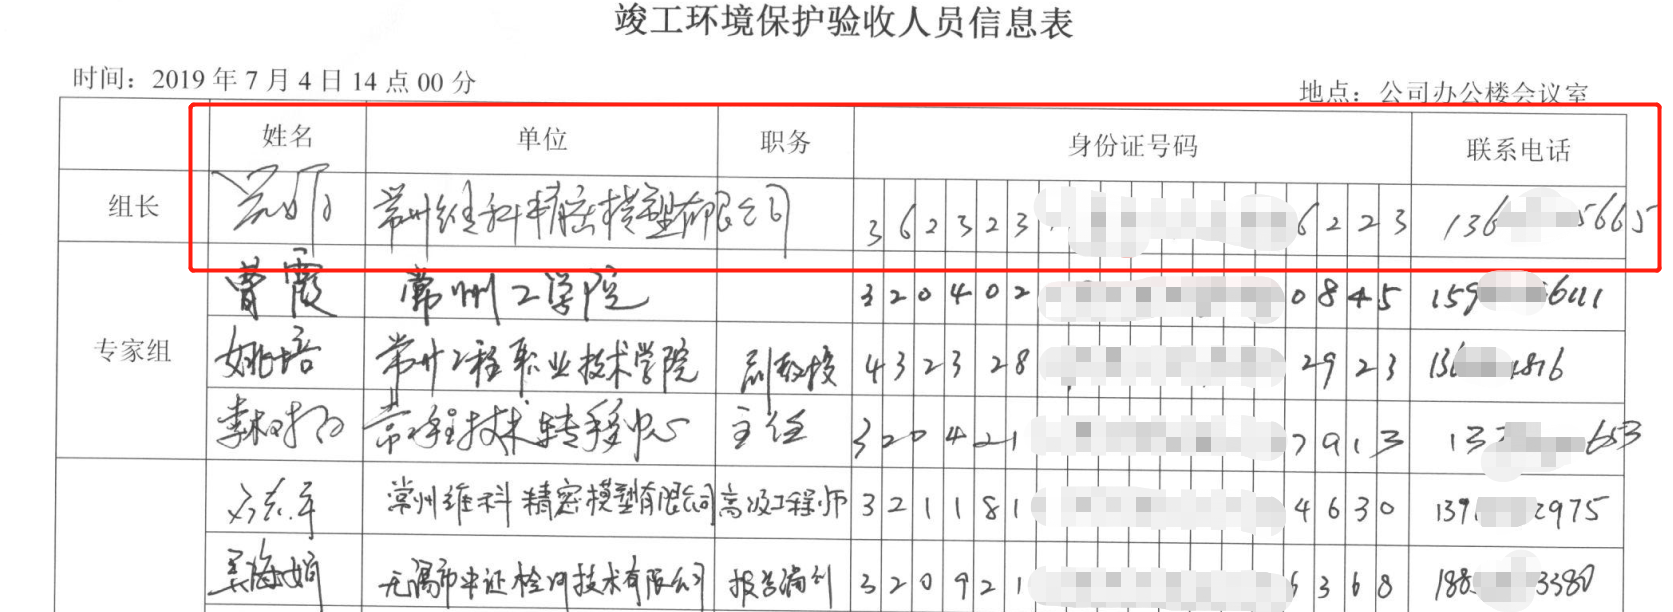 竣工环境保护验收人员信息表
时间：2019 年 7 月 4 日 14 点 00 分
地点：公司办公楼会议室
姓名 单位 职务 身份证号码 联系电话
组长 常州维科精密模塑有限公司 3 6 2 3 2 3 6 2 2 3 136 5665
曹霞 常州工学院 3 2 0 4 0 2 0 8 4 5 159 6111
专家组 姚培 常州工程职业技术学院 副教授 4 3 2 3 2 8 2 9 2 3 136 1816
李 常州工程技术转移中心 主任 3 2 0 4 2 1 7 9 1 3 137 653
常州维科精密模塑有限公司 高级工程师 3 2 1 1 8 1 4 6 3 0 139 2975
吴海娟 无锡市中证检测技术有限公司 报告编制 3 2 0 9 2 1 6 3 6 8 188 3380